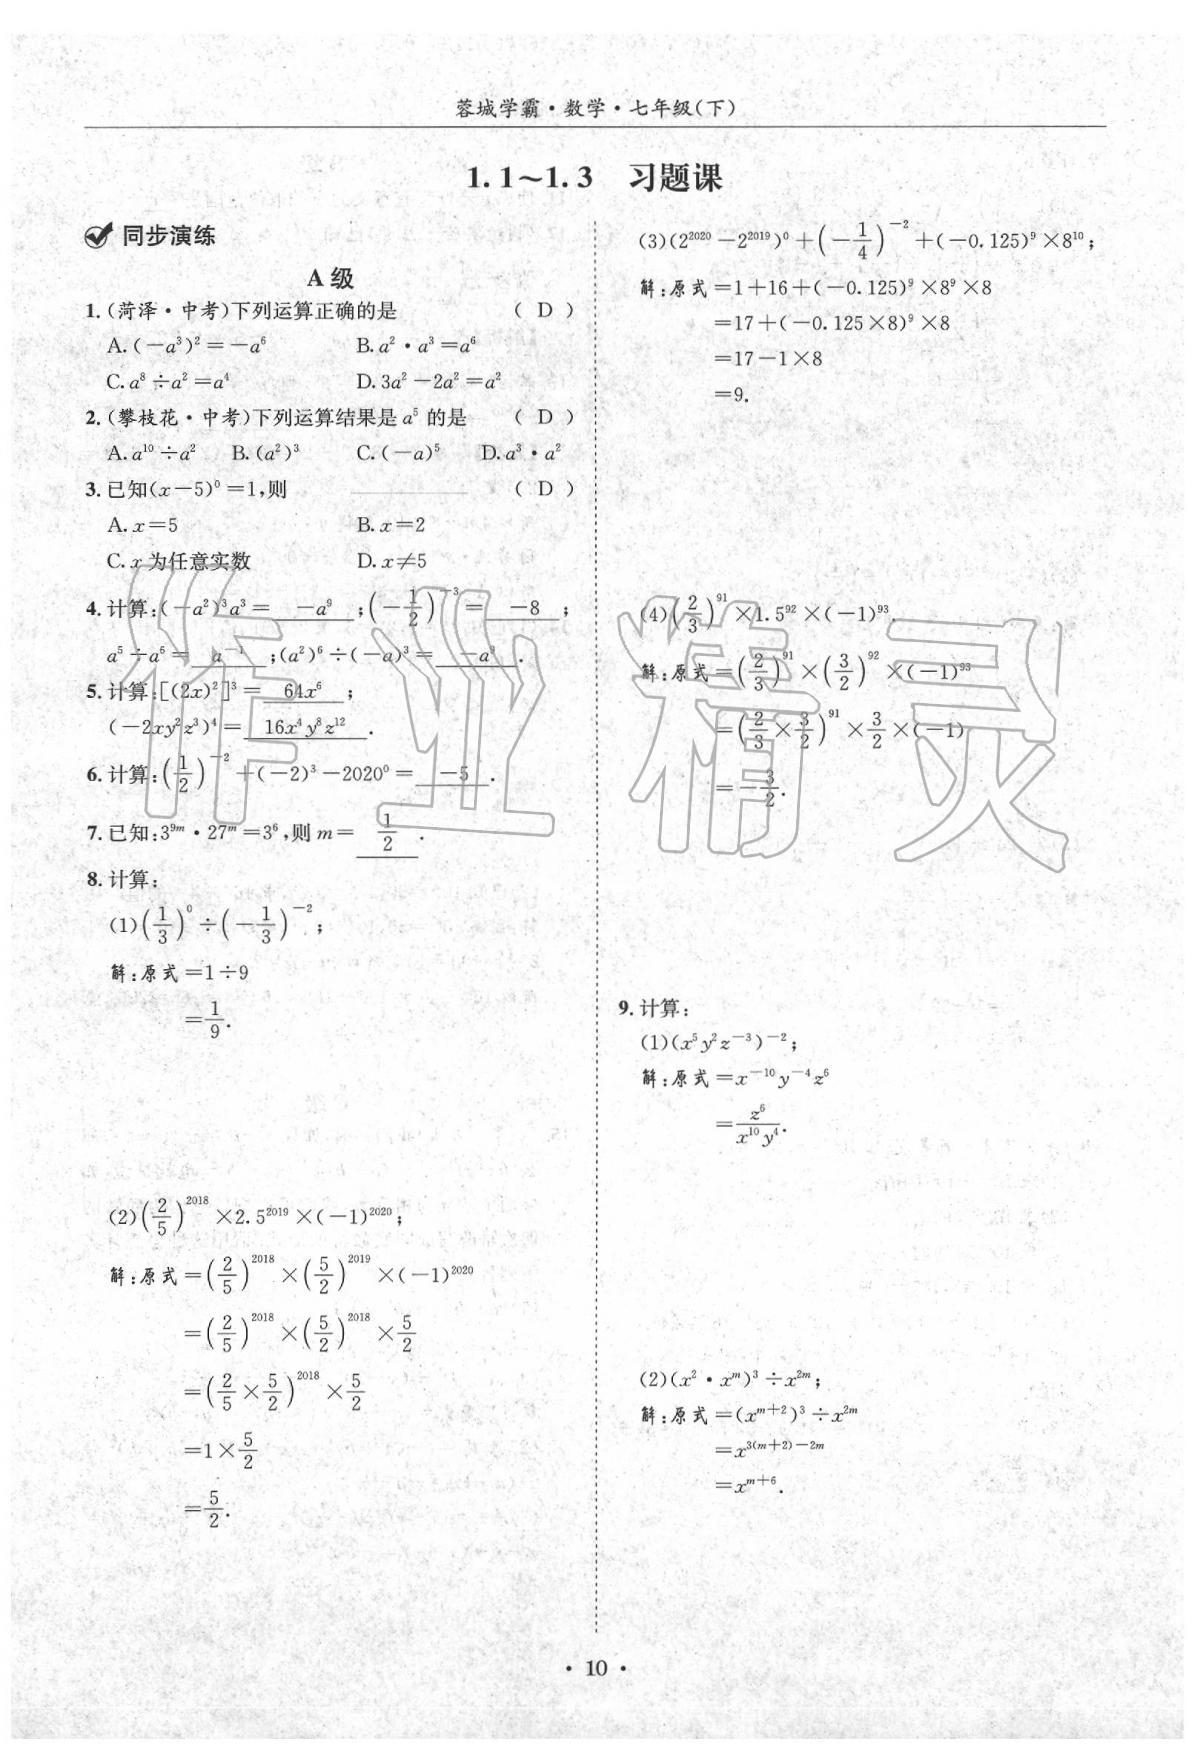 蓉城学霸·数学·七年级(下)
1.1～1.3 习题课
同步演练
A级
1.(菏泽·中考)下列运算正确的是 ( D )
A.(－a³)²＝－a⁶ B.a²·a³＝a⁶
C.a⁸÷a²＝a⁴ D.3a²－2a²＝a²
2.(攀枝花·中考)下列运算结果是a⁵的是 ( D )
A.a¹⁰÷a² B.(a²)³ C.(－a)⁵ D.a³·a²
3.已知(x－5)⁰＝1,则 ( D )
A.x＝5 B.x＝2
C.x为任意实数 D.x≠5
4.计算:(－a²)³a³＝ －a⁹ ;(－1/2)⁻³＝ －8 ;
a⁵÷a⁶＝ a⁻¹ ;(a²)⁶÷(－a)³＝ －a⁹ .
5.计算:[(2x)²]³＝ 64x⁶ ;
(－2xy²z³)⁴＝ 16x⁴y⁸z¹² .
6.计算:(1/2)⁻²＋(－2)³－2020⁰＝ －5 .
7.已知:3⁹ᵐ·27ᵐ＝3⁶,则m＝ 1/2 .
8.计算:
(1)(1/3)⁰÷(－1/3)⁻²;
解:原式＝1÷9
＝1/9.
(2)(2/5)²⁰¹⁸×2.5²⁰¹⁹×(－1)²⁰²⁰;
解:原式＝(2/5)²⁰¹⁸×(5/2)²⁰¹⁹×(－1)²⁰²⁰
＝(2/5)²⁰¹⁸×(5/2)²⁰¹⁸×5/2
＝(2/5×5/2)²⁰¹⁸×5/2
＝1×5/2
＝5/2.
(3)(2²⁰²⁰－2²⁰¹⁹)⁰＋(－1/4)⁻²＋(－0.125)⁹×8¹⁰;
解:原式＝1＋16＋(－0.125)⁹×8⁹×8
＝17＋(－0.125×8)⁹×8
＝17－1×8
＝9.
(4)(2/3)⁹¹×1.5⁹²×(－1)⁹³.
解:原式＝(2/3)⁹¹×(3/2)⁹²×(－1)⁹³
＝(2/3×3/2)⁹¹×3/2×(－1)
＝－3/2.
9.计算:
(1)(x⁵y²z⁻³)⁻²;
解:原式＝x⁻¹⁰y⁻⁴z⁶
＝z⁶/x¹⁰y⁴.
(2)(x²·xᵐ)³÷x²ᵐ;
解:原式＝(xᵐ⁺²)³÷x²ᵐ
＝x³⁽ᵐ⁺²⁾⁻²ᵐ
＝xᵐ⁺⁶.
作业精灵
·10·